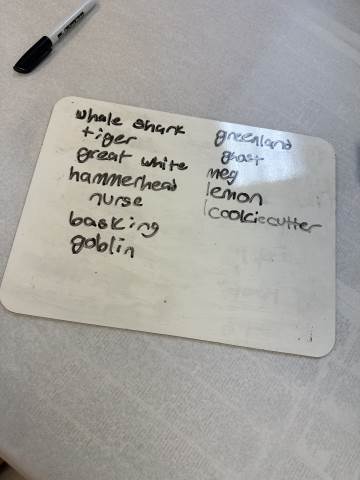 whale shark
tiger
great white
hammerhead
nurse
basking
goblin
greenland
ghost
meg
lemon
cookiecutter